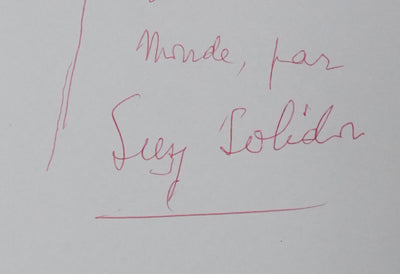 Monde, par
Suzy Solidor